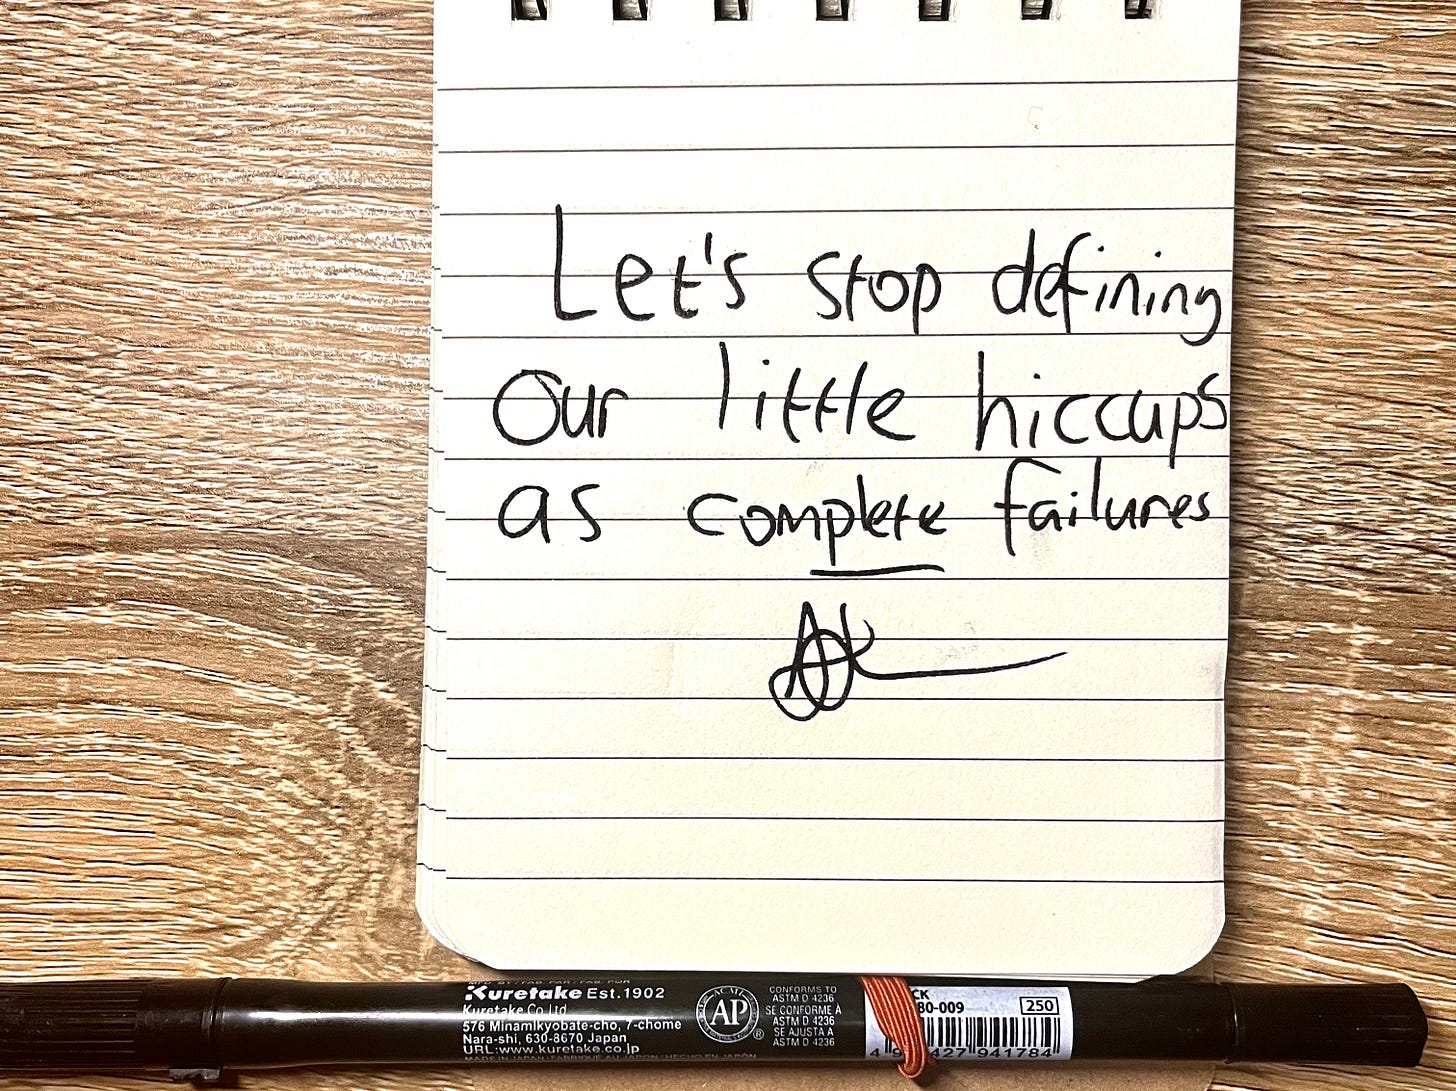 Let's stop defining
our little hiccups
as complete failures
Kuretake Est.1902
Kuretake Co.Ltd
576 Minamikyobate-cho, 7-chome
Nara-shi, 630-8670 Japan
URL:www.kuretake.co.jp
MADE IN JAPAN/FABRIQUÉ AU JAPON/HECHO EN JAPÓN
ACMI
AP
®
CONFORMS TO
ASTM D 4236
SE CONFORME À
ASTM D 4236
SE AJUSTA A
ASTM D 4236
CK
80-009
250
427 941784